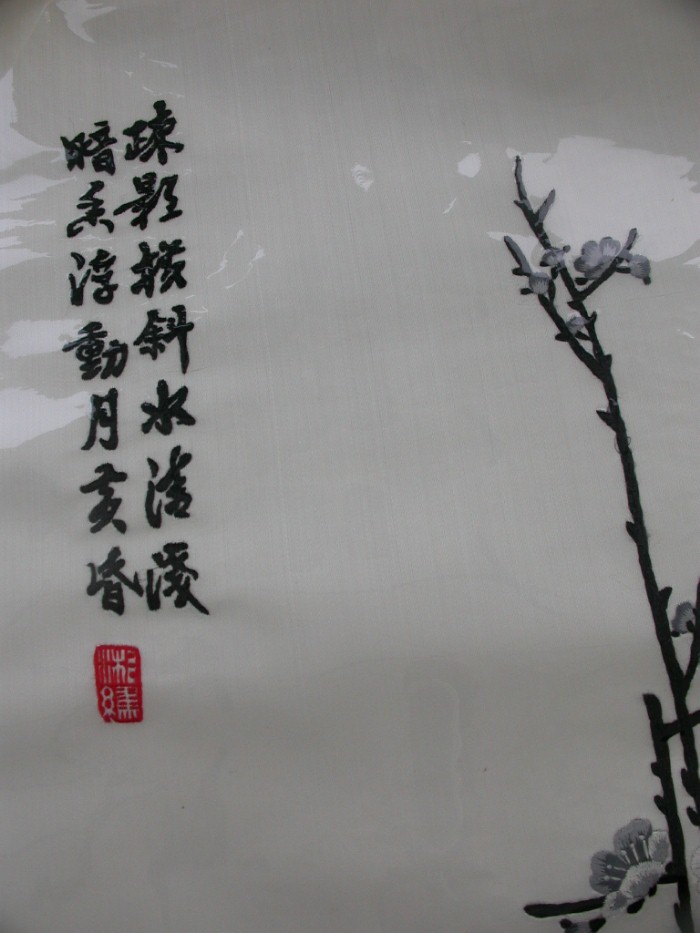 疎影横斜水清淺
暗香浮動月黄昏